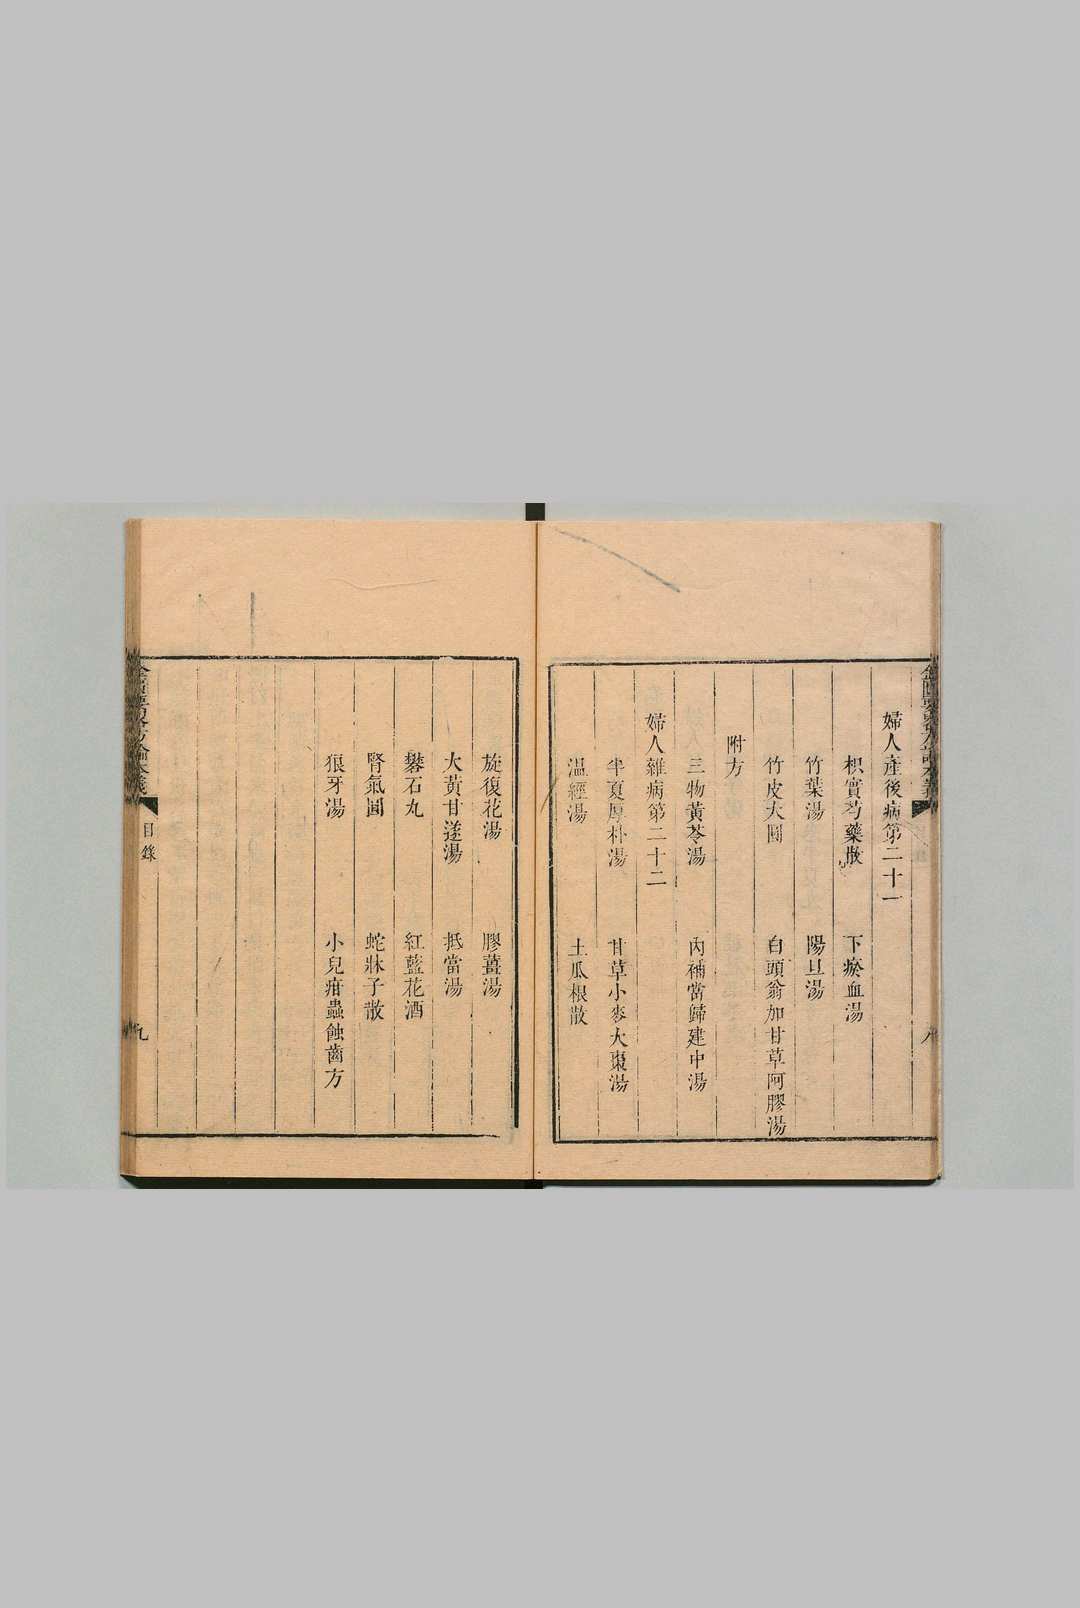 婦人產後病第二十一
枳實芍藥散　下瘀血湯
竹葉湯　陽旦湯
竹皮大圓　白頭翁加甘草阿膠湯
附方
三物黃芩湯　內補當歸建中湯
婦人雜病第二十二
半夏厚朴湯　甘草小麥大棗湯
溫經湯　土瓜根散
八
旋復花湯　膠薑湯
大黃甘遂湯　抵當湯
礬石丸　紅藍花酒
腎氣圓　蛇牀子散
狼牙湯　小兒疳蟲蝕齒方
目錄
九